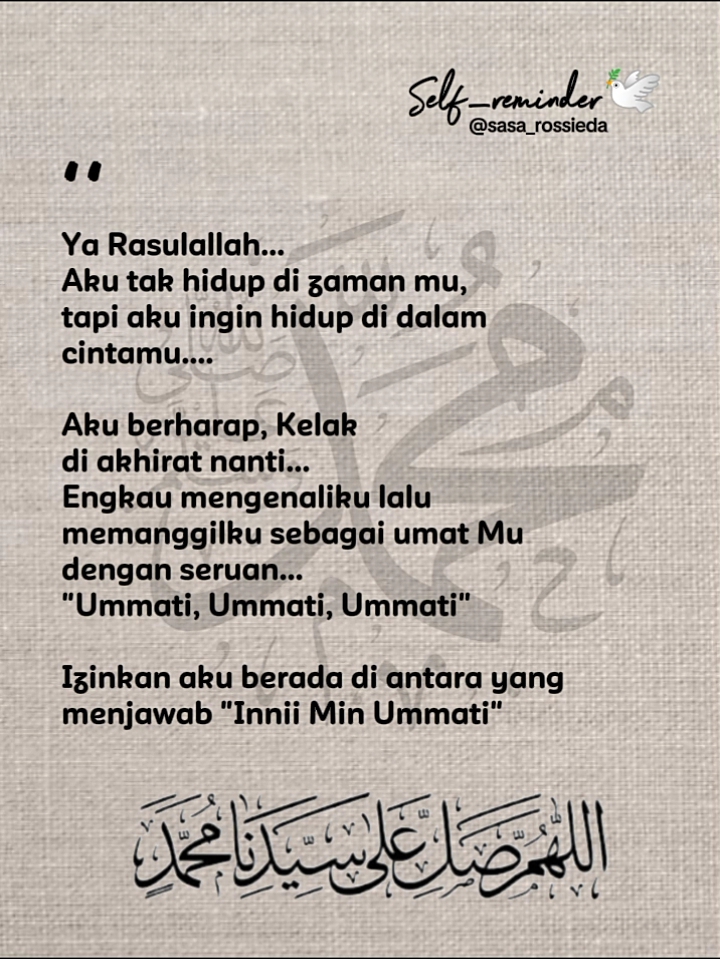 Self_reminder
@sasa_rossieda
"
Ya Rasulallah...
Aku tak hidup di zaman mu,
tapi aku ingin hidup di dalam
cintamu....
Aku berharap, Kelak
di akhirat nanti...
Engkau mengenaliku lalu
memanggilku sebagai umat Mu
dengan seruan...
"Ummati, Ummati, Ummati"
Izinkan aku berada di antara yang
menjawab "Innii Min Ummati"
اللهم صل على سيدنا محمد